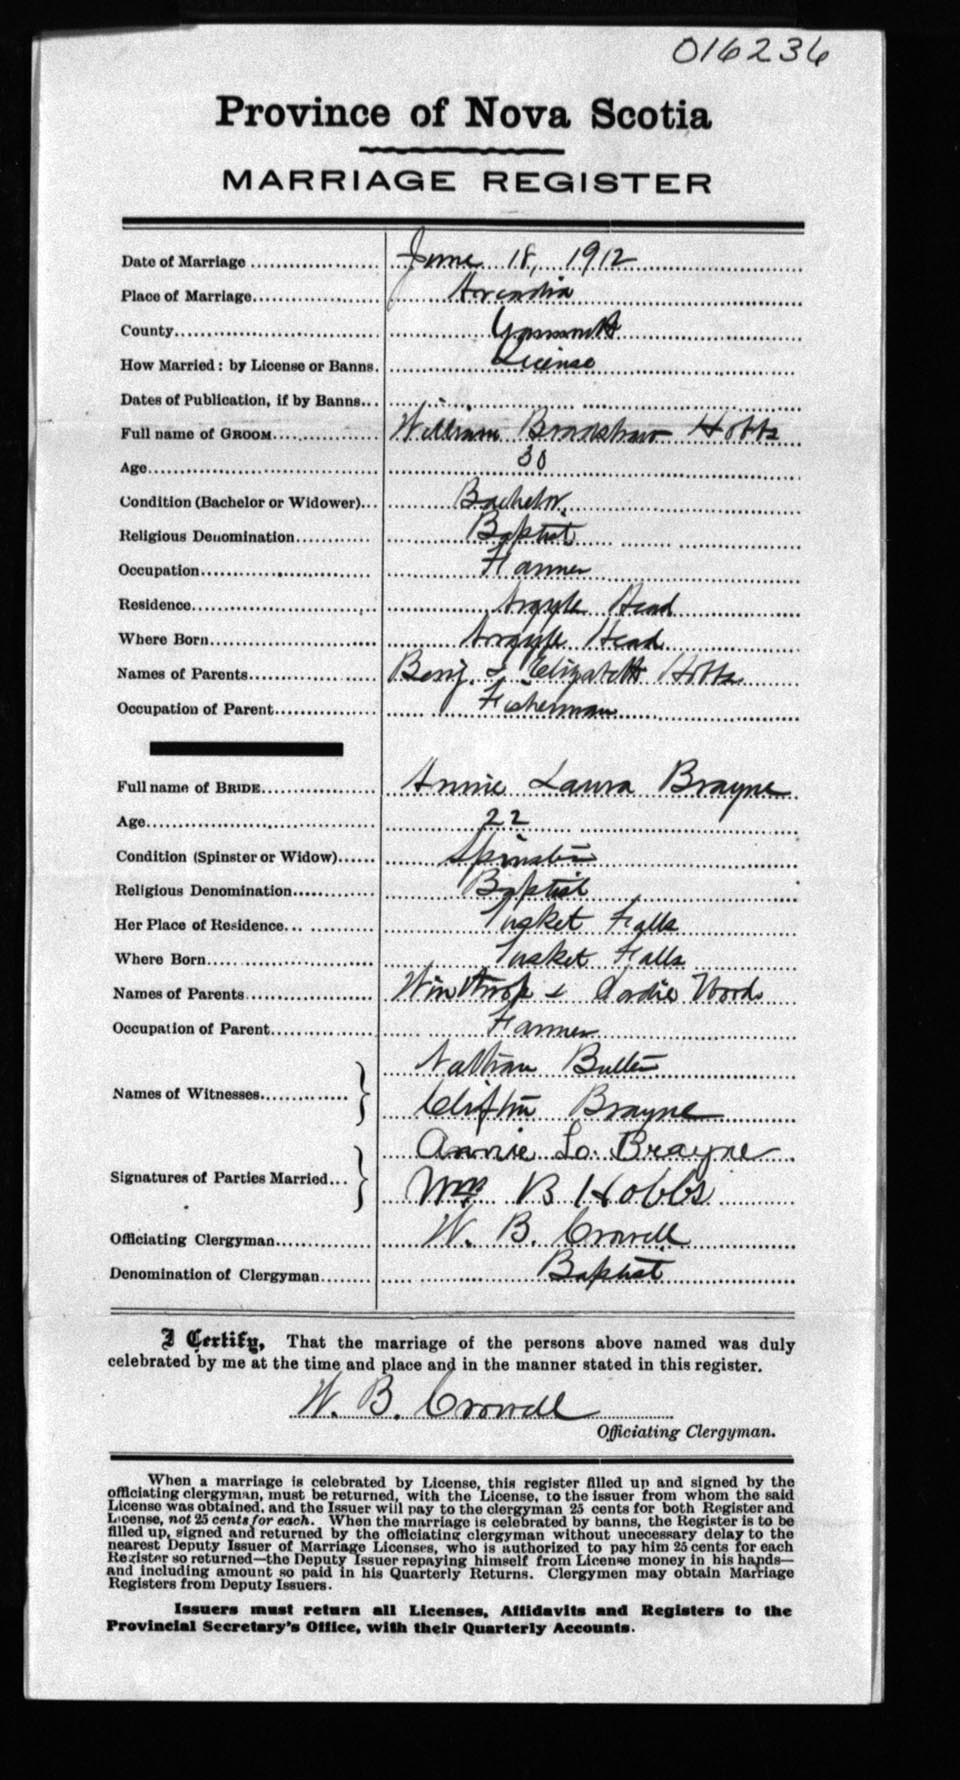 016236
Province of Nova Scotia
MARRIAGE REGISTER
Date of Marriage June 18, 1912
Place of Marriage Arcadia
County Yarmouth
How Married: by License or Banns. License
Dates of Publication, if by Banns
Full name of GROOM William Bradshaw Hobbs
Age 30
Condition (Bachelor or Widower) Bachelor.
Religious Denomination Baptist
Occupation Farmer
Residence Argyle Head
Where Born Argyle Head
Names of Parents Benj. & Elizabeth Hobbs
Occupation of Parent Fisherman
Full name of BRIDE Annie Laura Brayne
Age 22
Condition (Spinster or Widow) Spinster
Religious Denomination Baptist
Her Place of Residence Tusket Falls
Where Born Tusket Falls
Names of Parents Winthrop & Woods
Occupation of Parent Farmer
Names of Witnesses Nathan Butler
Clifton Brayne
Signatures of Parties Married Annie L. Brayne
Wm B Hobbs
Officiating Clergyman W. B. Crowell
Denomination of Clergyman Baptist
I Certify, That the marriage of the persons above named was duly
celebrated by me at the time and place and in the manner stated in this register.
W. B. Crowell
Officiating Clergyman.
When a marriage is celebrated by License, this register filled up and signed by the
officiating clergyman, must be returned, with the License, to the issuer from whom the said
License was obtained, and the Issuer will pay to the clergyman 25 cents for both Register and
License, not 25 cents for each. When the marriage is celebrated by banns, the Register is to be
filled up, signed and returned by the officiating clergyman without unecessary delay to the
nearest Deputy Issuer of Marriage Licenses, who is authorized to pay him 25 cents for each
Register so returned—the Deputy Issuer repaying himself from License money in his hands—
and including amount so paid in his Quarterly Returns. Clergymen may obtain Marriage
Registers from Deputy Issuers.
Issuers must return all Licenses, Affidavits and Registers to the
Provincial Secretary's Office, with their Quarterly Accounts.